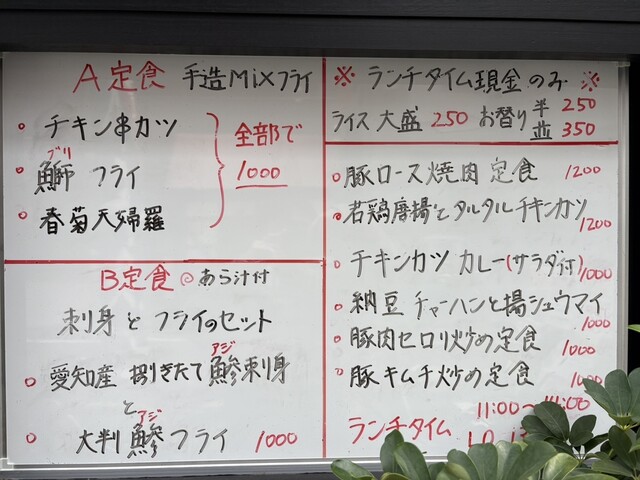 A定食 手造Mixフライ
チキン串カツ
ブリ
鰤フライ
春菊天婦羅
全部で
1000
B定食 あら汁付
刺身とフライのセット
アジ
愛知産 捌きたて鯵刺身
と
アジ
大判鯵フライ 1000
※ランチタイム現金のみ※
ライス大盛250 お替り半250
並350
豚ロース焼肉定食 1200
若鶏唐揚とタルタルチキンカツ
1200
チキンカツカレー(サラダ付)
1000
納豆チャーハンと揚シュウマイ
1000
豚肉セロリ炒め定食
1000
豚キムチ炒め定食
ランチタイム 11:00〜14:00